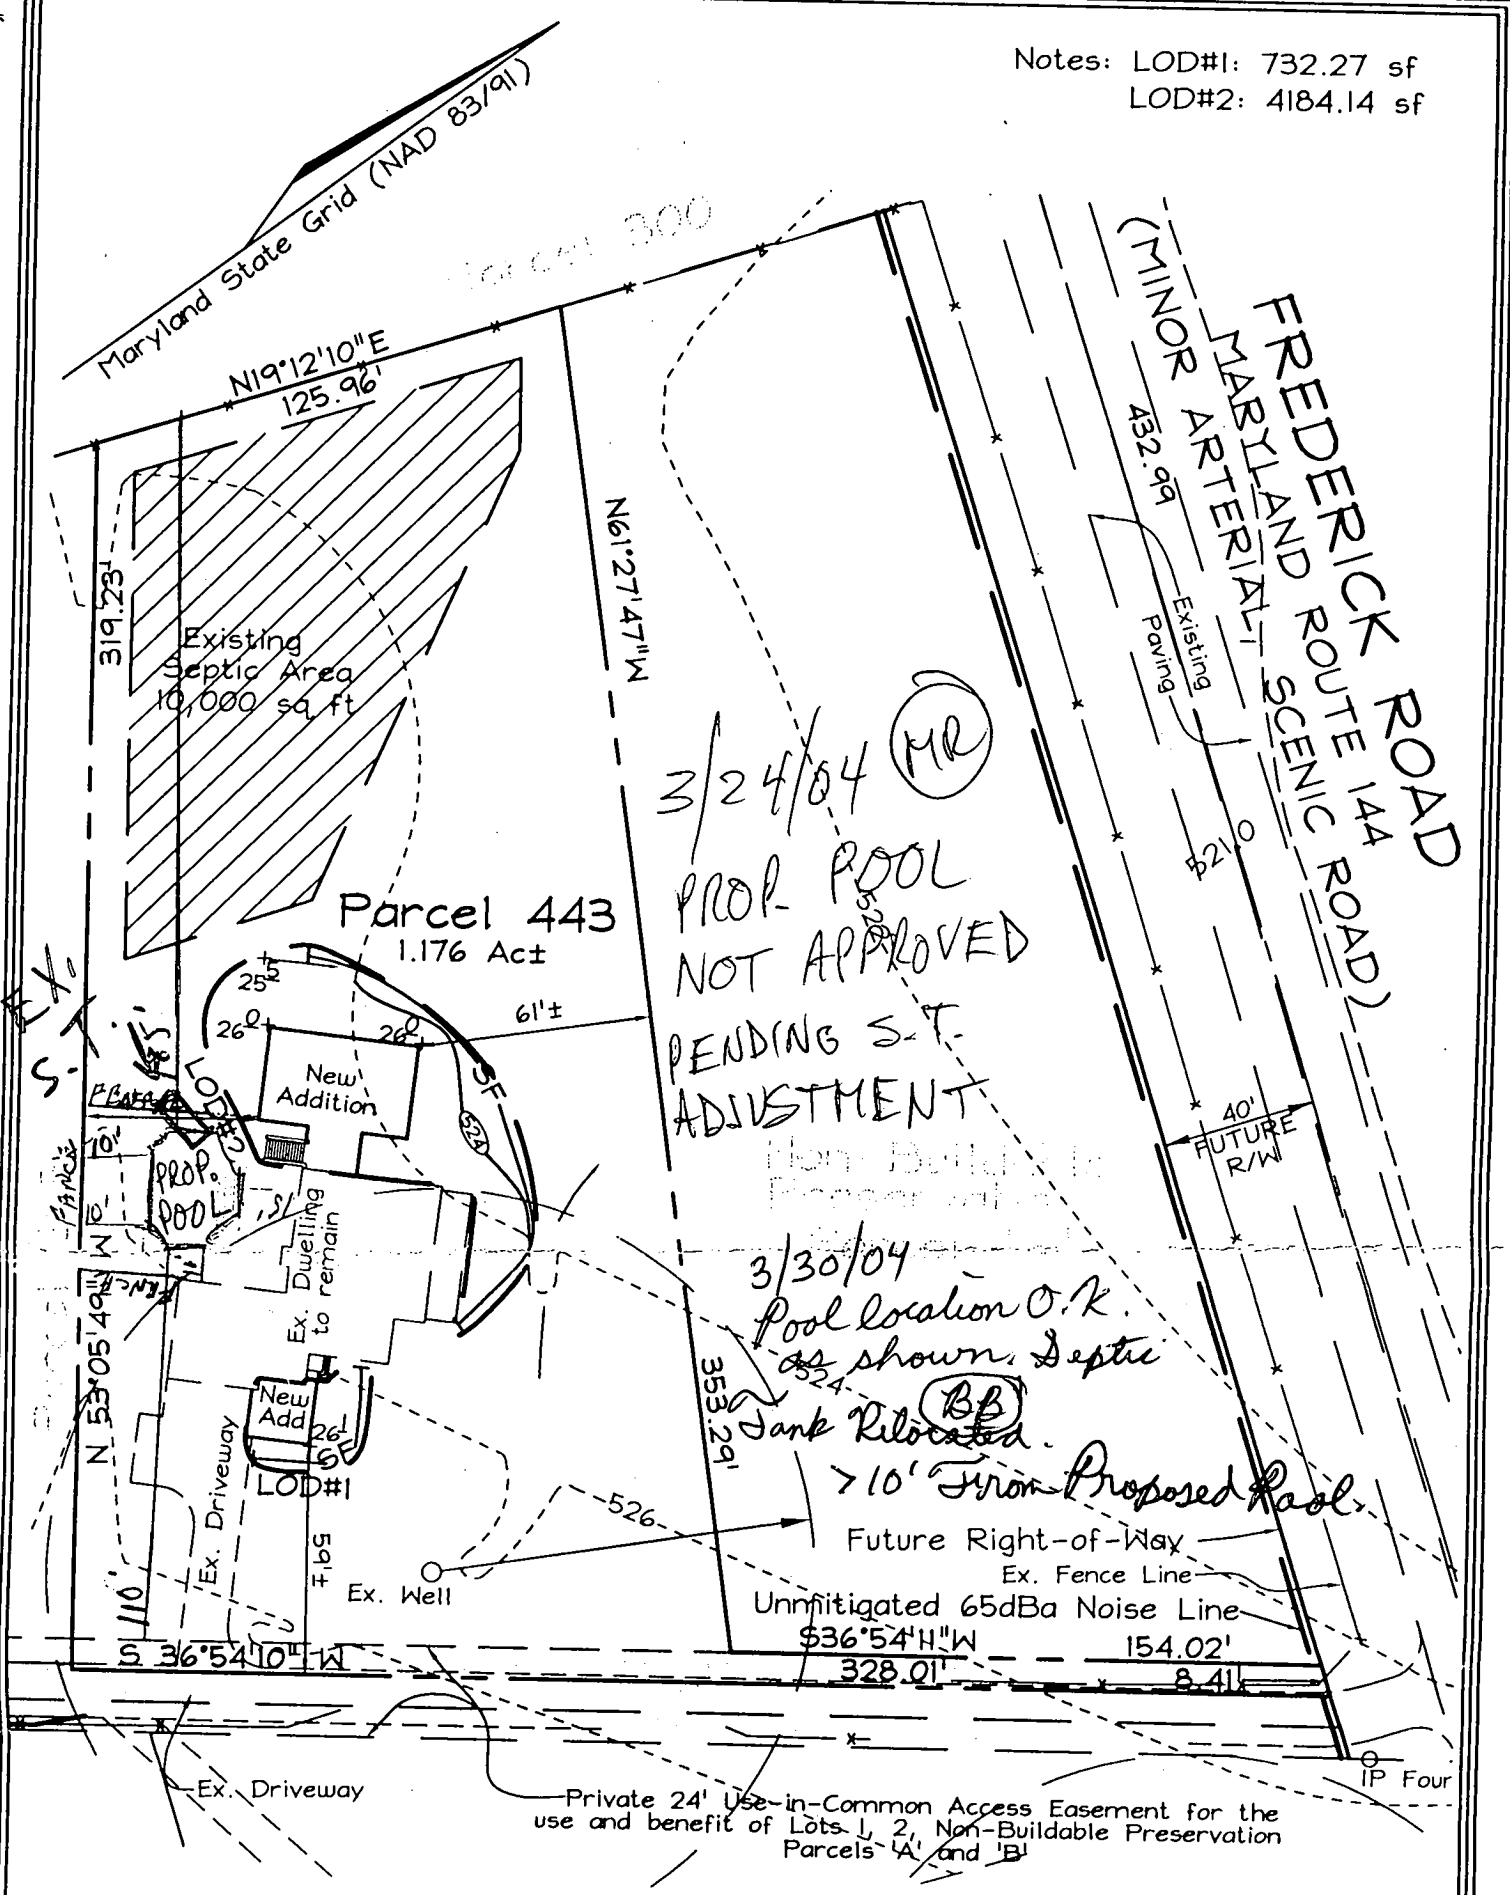 Notes: LOD#1: 732.27 sf
LOD#2: 4184.14 sf
Maryland State Grid (NAD 83/91)
Parcel 300
N19°12'10"E
125.96'
319.23'
N61°27'47"W
FREDERICK ROAD
MARYLAND ROUTE 144
(MINOR ARTERIAL, SCENIC ROAD)
432.99
Existing
Paving
Existing
Septic Area
10,000 sq ft
3/24/04 MR
PROP. POOL
NOT APPROVED
PENDING S.T.
ADJUSTMENT
521.0
526
Parcel 443
1.176 Ac±
EX.
S.T.
25⁵
26⁰
26⁰
61'±
New
Addition
SF
524
LOD#2
10'
10'
PROP.
POOL
15'
FENCE
FENCE
Ex. Dwelling
to remain
40'
FUTURE
R/W
Non-Buildable
Preservation
3/30/04
Pool location O.K.
as shown. Septic
Tank Relocated.
BB
>10' From Proposed Pool.
524
N 53°05'49" W
353.29'
New
Add
26¹
SF
LOD#1
Ex. Driveway
110'
59'±
Ex. Well
526
Future Right-of-Way
Ex. Fence Line
Unmitigated 65dBa Noise Line
S 36°54'10" W
S36°54'11"W
154.02'
328.01'
8.41'
IP Four
Ex. Driveway
Private 24' Use-in-Common Access Easement for the
use and benefit of Lots 1, 2, Non-Buildable Preservation
Parcels 'A' and 'B'